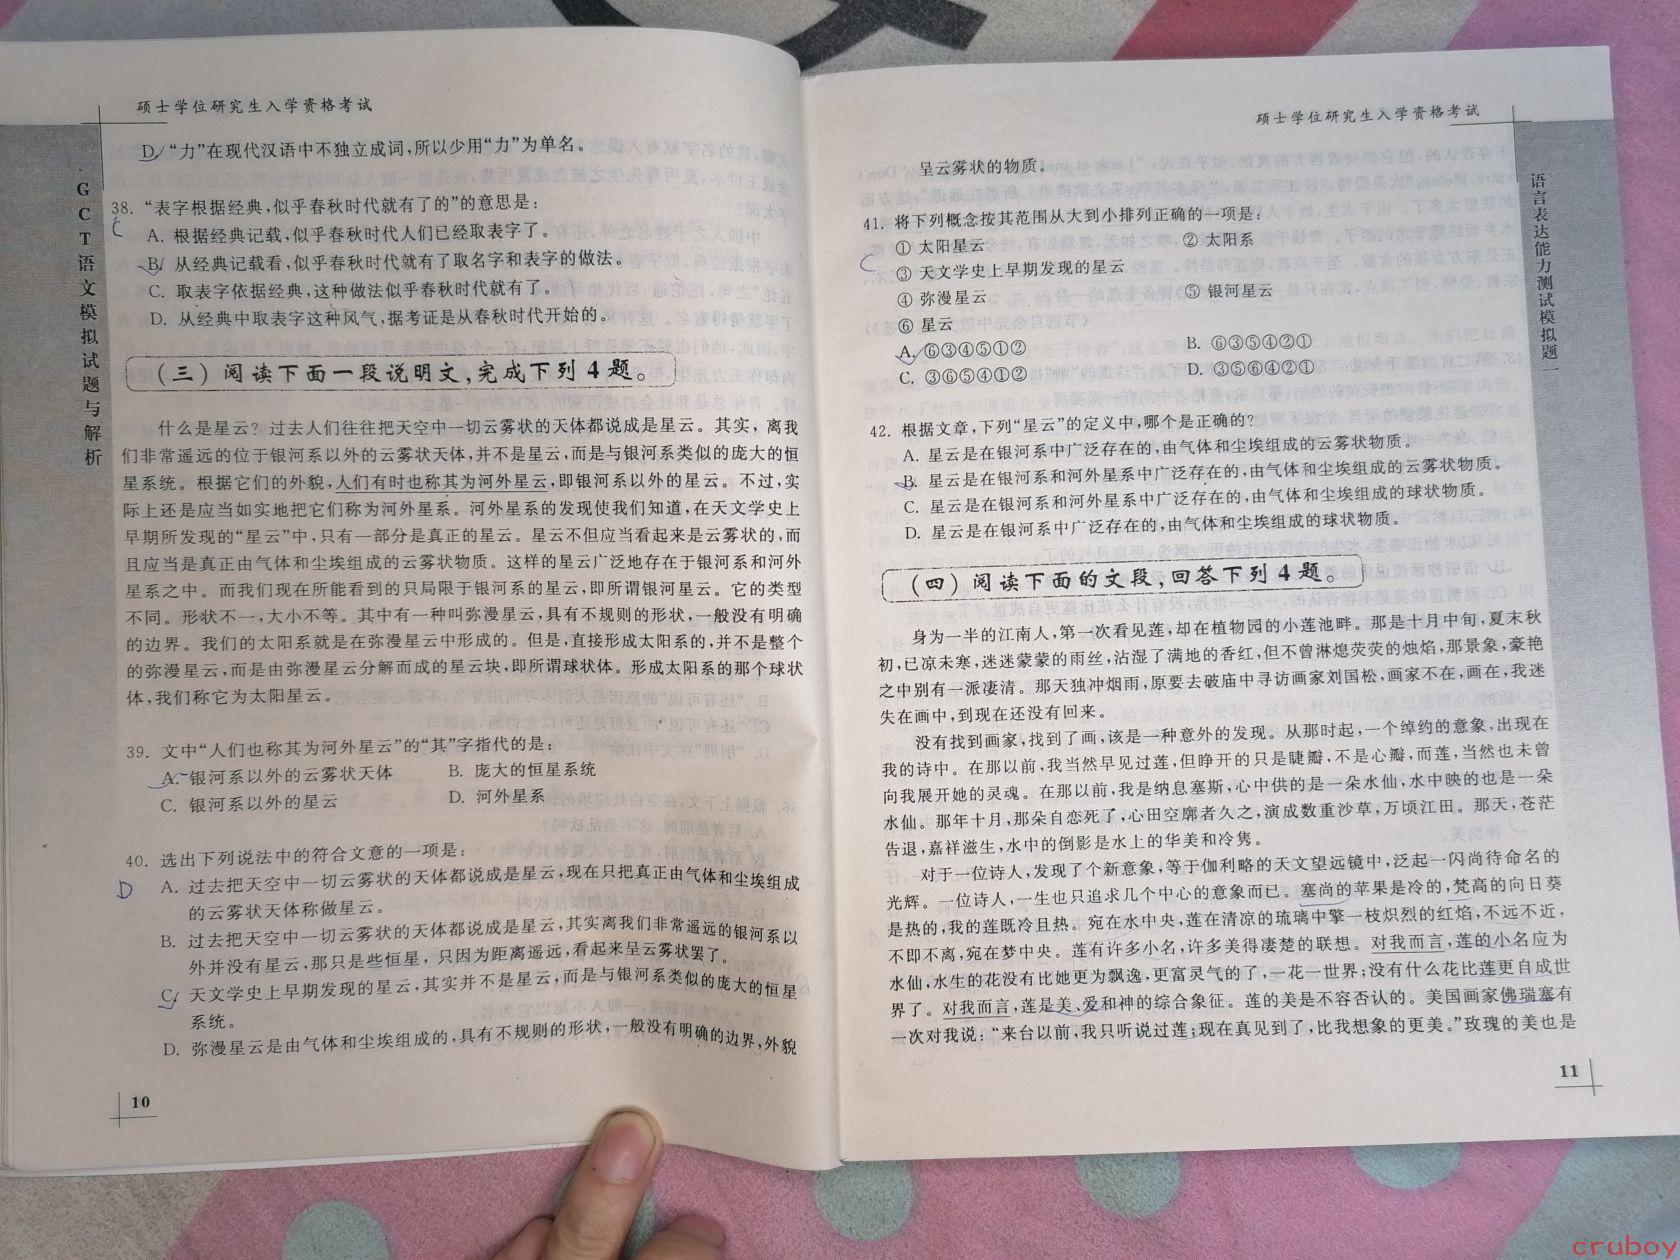 硕士学位研究生入学资格考试
GCT语文模拟试题与解析
D. “力”在现代汉语中不独立成词,所以少用“力”为单名。
38. “表字根据经典,似乎春秋时代就有了的”的意思是:
C
A. 根据经典记载,似乎春秋时代人们已经取表字了。
B. 从经典记载看,似乎春秋时代就有了取名字和表字的做法。
C. 取表字依据经典,这种做法似乎春秋时代就有了。
D. 从经典中取表字这种风气,据考证是从春秋时代开始的。
(三) 阅读下面一段说明文,完成下列4题。
什么是星云?过去人们往往把天空中一切云雾状的天体都说成是星云。其实,离我
们非常遥远的位于银河系以外的云雾状天体,并不是星云,而是与银河系类似的庞大的恒
星系统。根据它们的外貌,人们有时也称其为河外星云,即银河系以外的星云。不过,实
际上还是应当如实地把它们称为河外星系。河外星系的发现使我们知道,在天文学史上
早期所发现的“星云”中,只有一部分是真正的星云。星云不但应当看起来是云雾状的,而
且应当是真正由气体和尘埃组成的云雾状物质。这样的星云广泛地存在于银河系和河外
星系之中。而我们现在所能看到的只局限于银河系的星云,即所谓银河星云。它的类型
不同。形状不一,大小不等。其中有一种叫弥漫星云,具有不规则的形状,一般没有明确
的边界。我们的太阳系就是在弥漫星云中形成的。但是,直接形成太阳系的,并不是整个
的弥漫星云,而是由弥漫星云分解而成的星云块,即所谓球状体。形成太阳系的那个球状
体,我们称它为太阳星云。
39. 文中“人们也称其为河外星云”的“其”字指代的是:
A. 银河系以外的云雾状天体 B. 庞大的恒星系统
C. 银河系以外的星云 D. 河外星系
40. 选出下列说法中的符合文意的一项是:
D
A. 过去把天空中一切云雾状的天体都说成是星云,现在只把真正由气体和尘埃组成
的云雾状天体称做星云。
B. 过去把天空中一切云雾状的天体都说成是星云,其实离我们非常遥远的银河系以
外并没有星云,那只是些恒星,只因为距离遥远,看起来呈云雾状罢了。
C. 天文学史上早期发现的星云,其实并不是星云,而是与银河系类似的庞大的恒星
系统。
D. 弥漫星云是由气体和尘埃组成的,具有不规则的形状,一般没有明确的边界,外貌
10
硕士学位研究生入学资格考试
语言表达能力测试模拟题一
呈云雾状的物质。
41. 将下列概念按其范围从大到小排列正确的一项是:
C
① 太阳星云 ② 太阳系
③ 天文学史上早期发现的星云
④ 弥漫星云 ⑤ 银河星云
⑥ 星云
A. ⑥③④⑤①② B. ⑥③⑤④②①
C. ③⑥⑤④①② D. ③⑤⑥④②①
42. 根据文章,下列“星云”的定义中,哪个是正确的?
A. 星云是在银河系中广泛存在的,由气体和尘埃组成的云雾状物质。
B. 星云是在银河系和河外星系中广泛存在的,由气体和尘埃组成的云雾状物质。
C. 星云是在银河系和河外星系中广泛存在的,由气体和尘埃组成的球状物质。
D. 星云是在银河系中广泛存在的,由气体和尘埃组成的球状物质。
(四) 阅读下面的文段,回答下列4题。
身为一半的江南人,第一次看见莲,却在植物园的小莲池畔。那是十月中旬,夏末秋
初,已凉未寒,迷迷蒙蒙的雨丝,沾湿了满地的香红,但不曾淋熄荧荧的烛焰,那景象,豪艳
之中别有一派凄清。那天独冲烟雨,原要去破庙中寻访画家刘国松,画家不在,画在,我迷
失在画中,到现在还没有回来。
没有找到画家,找到了画,该是一种意外的发现。从那时起,一个绰约的意象,出现在
我的诗中。在那以前,我当然早见过莲,但睁开的只是睫瓣,不是心瓣,而莲,当然也未曾
向我展开她的灵魂。在那以前,我是纳息塞斯,心中供的是一朵水仙,水中映的也是一朵
水仙。那年十月,那朵自恋死了,心田空廓者久之,演成数重沙草,万顷江田。那天,苍茫
告退,嘉祥滋生,水中的倒影是水上的华美和冷隽。
对于一位诗人,发现了个新意象,等于伽利略的天文望远镜中,泛起一闪尚待命名的
光辉。一位诗人,一生也只追求几个中心的意象而已。塞尚的苹果是冷的,梵高的向日葵
是热的,我的莲既冷且热。宛在水中央,莲在清凉的琉璃中擎一枝炽烈的红焰,不远不近,
不即不离,宛在梦中央。莲有许多小名,许多美得凄楚的联想。对我而言,莲的小名应为
水仙,水生的花没有比她更为飘逸,更富灵气的了,一花一世界;没有什么花比莲更自成世
界了。对我而言,莲是美、爱和神的综合象征。莲的美是不容否认的。美国画家佛瑞塞有
一次对我说:“来台以前,我只听说过莲;现在真见到了,比我想象的更美。”玫瑰的美也是
11
cruboy